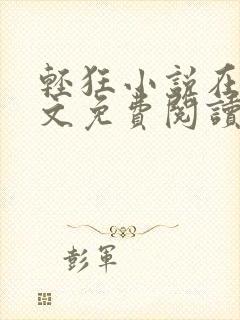 輕狂小說在
文免費閱讀
彭軍